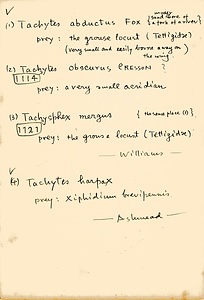 (1) Tachytes abductus Fox { woody
sand area of
a fork of a river }
prey : the grouse locust ( Tettigidæ )
(very small and easily borne away on
the wing.
(2) Tachytes obscurus CRESSON ?
1114
prey : a very small acridian
(3) Tachysphex mergus { the same place (1) }
1121
prey : the grouse locust ( Tettigidæ )
— Williams —
(4) Tachytes harpax
prey : Xiphidium brevipennis
— Ashmead —